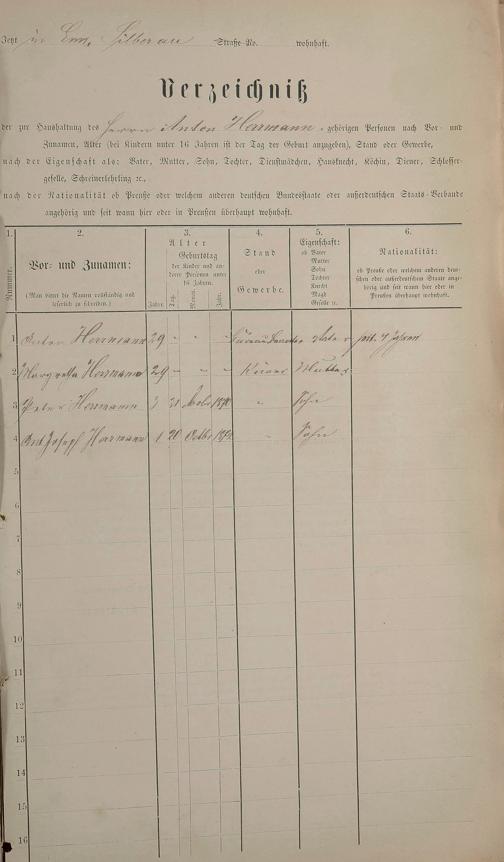 Jetzt in Ems, Silberau Straße No. wohnhaft.
Verzeichniß
der zur Haushaltung des Herrn Anton Herrmann gehörigen Personen nach Vor- und
Zunamen, Alter (bei Kindern unter 16 Jahren ist der Tag der Geburt anzugeben), Stand oder Gewerbe,
nach der Eigenschaft als: Vater, Mutter, Sohn, Tochter, Dienstmädchen, Hausknecht, Köchin, Diener, Schlosser-
geselle, Schreinerlehrling ꝛc.,
nach der Nationalität ob Preuße oder welchem anderen deutschen Bundesstaate oder außerdeutschen Staats-Verbande
angehörig und seit wann hier oder in Preußen überhaupt wohnhaft.
1. 2. 3. 4. 5. 6.
Nummer.
Vor- und Zunamen:
(Man bittet die Namen vollständig und
leserlich zu schreiben.)
Alter
Geburtstag
der Kinder und an-
derer Personen unter
16 Jahren.
Jahre. Tag. Monat. Jahr.
Stand
oder
Gewerbe.
Eigenschaft:
ob Vater
Mutter
Sohn
Tochter
Knecht
Magd
Geselle ꝛc.
Nationalität:
ob Preuße oder welchem anderen deut-
schen oder außerdeutschen Staate ange-
hörig und seit wann hier oder in
Preußen überhaupt wohnhaft.
1 Anton Herrmann 29 " " " Vater seit 4 Jahren
2 Margretha Herrmann 29 " " " Mutter
3 Peter Herrmann 3 21 " Sohn
4 Joseph Herrmann 1 20 Octbr " Sohn
5
6
7
8
9
10
11
12
13
14
15
16